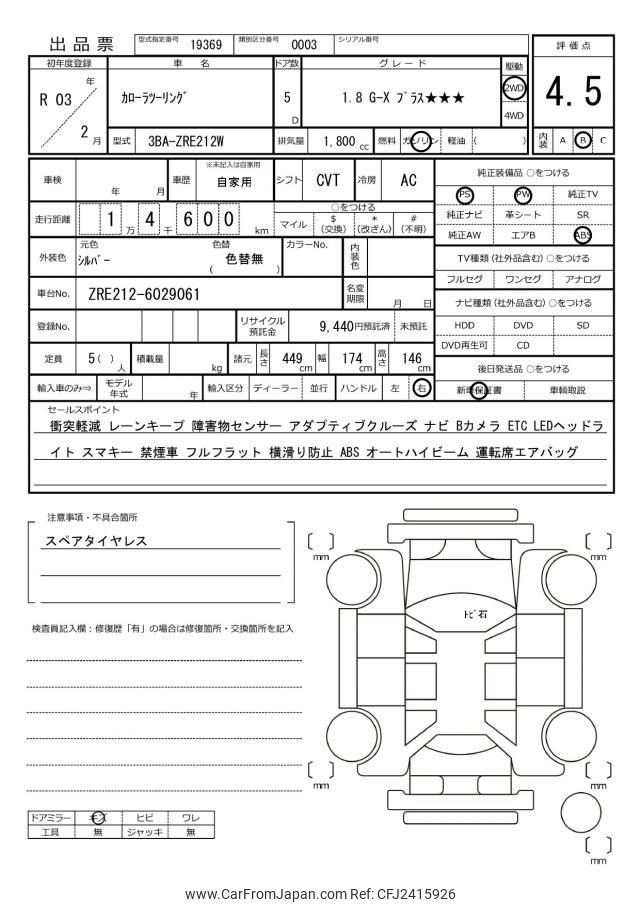 出品票 型式指定番号 19369 類別区分番号 0003 シリアル番号
評価点
4.5
内装 A B C
初年度登録 車 名 ドア数 グレード 駆動
R 03 年 2 月
カローラツーリング 5 D 1.8 G-X プラス★★★ 2WD
4WD
型式 3BA-ZRE212W 排気量 1,800 cc 燃料 ガソリン 軽油 ( )
車検 年 月 車歴 ※未記入は自家用 自家用 シフト CVT 冷房 AC
走行距離 1 万 4 千 6 0 0 km ○をつける
マイル $ (交換) * (改ざん) # (不明)
外装色 元色 シルバー 色替 ( 色替無 ) カラーNo. 内装色
車台No. ZRE212-6029061 名変期限 月 日
登録No. リサイクル預託金 9,440円預託済 未預託
定員 5( ) 人 積載量 kg 諸元 長さ 449 cm 幅 174 cm 高さ 146 cm
輸入車のみ⇒ モデル年式 年 輸入区分 ディーラー 並行 ハンドル 左 右
純正装備品 ○をつける
PS PW 純正TV
純正ナビ 革シート SR
純正AW エアB ABS
TV種類 (社外品含む) ○をつける
フルセグ ワンセグ アナログ
ナビ種類 (社外品含む) ○をつける
HDD DVD SD
DVD再生可 CD
後日発送品 ○をつける
新車保証書 車輌取説
セールスポイント
衝突軽減 レーンキープ 障害物センサー アダプティブクルーズ ナビ Bカメラ ETC LEDヘッドラ
イト スマキー 禁煙車 フルフラット 横滑り防止 ABS オートハイビーム 運転席エアバッグ
注意事項・不具合箇所
スペアタイヤレス
検査員記入欄：修復歴「有」の場合は修復箇所・交換箇所を記入
mm
mm
トビ石
mm
mm
mm
ドアミラー キズ ヒビ ワレ
工具 無 ジャッキ 無
www.CarFromJapan.com Ref: CFJ2415926